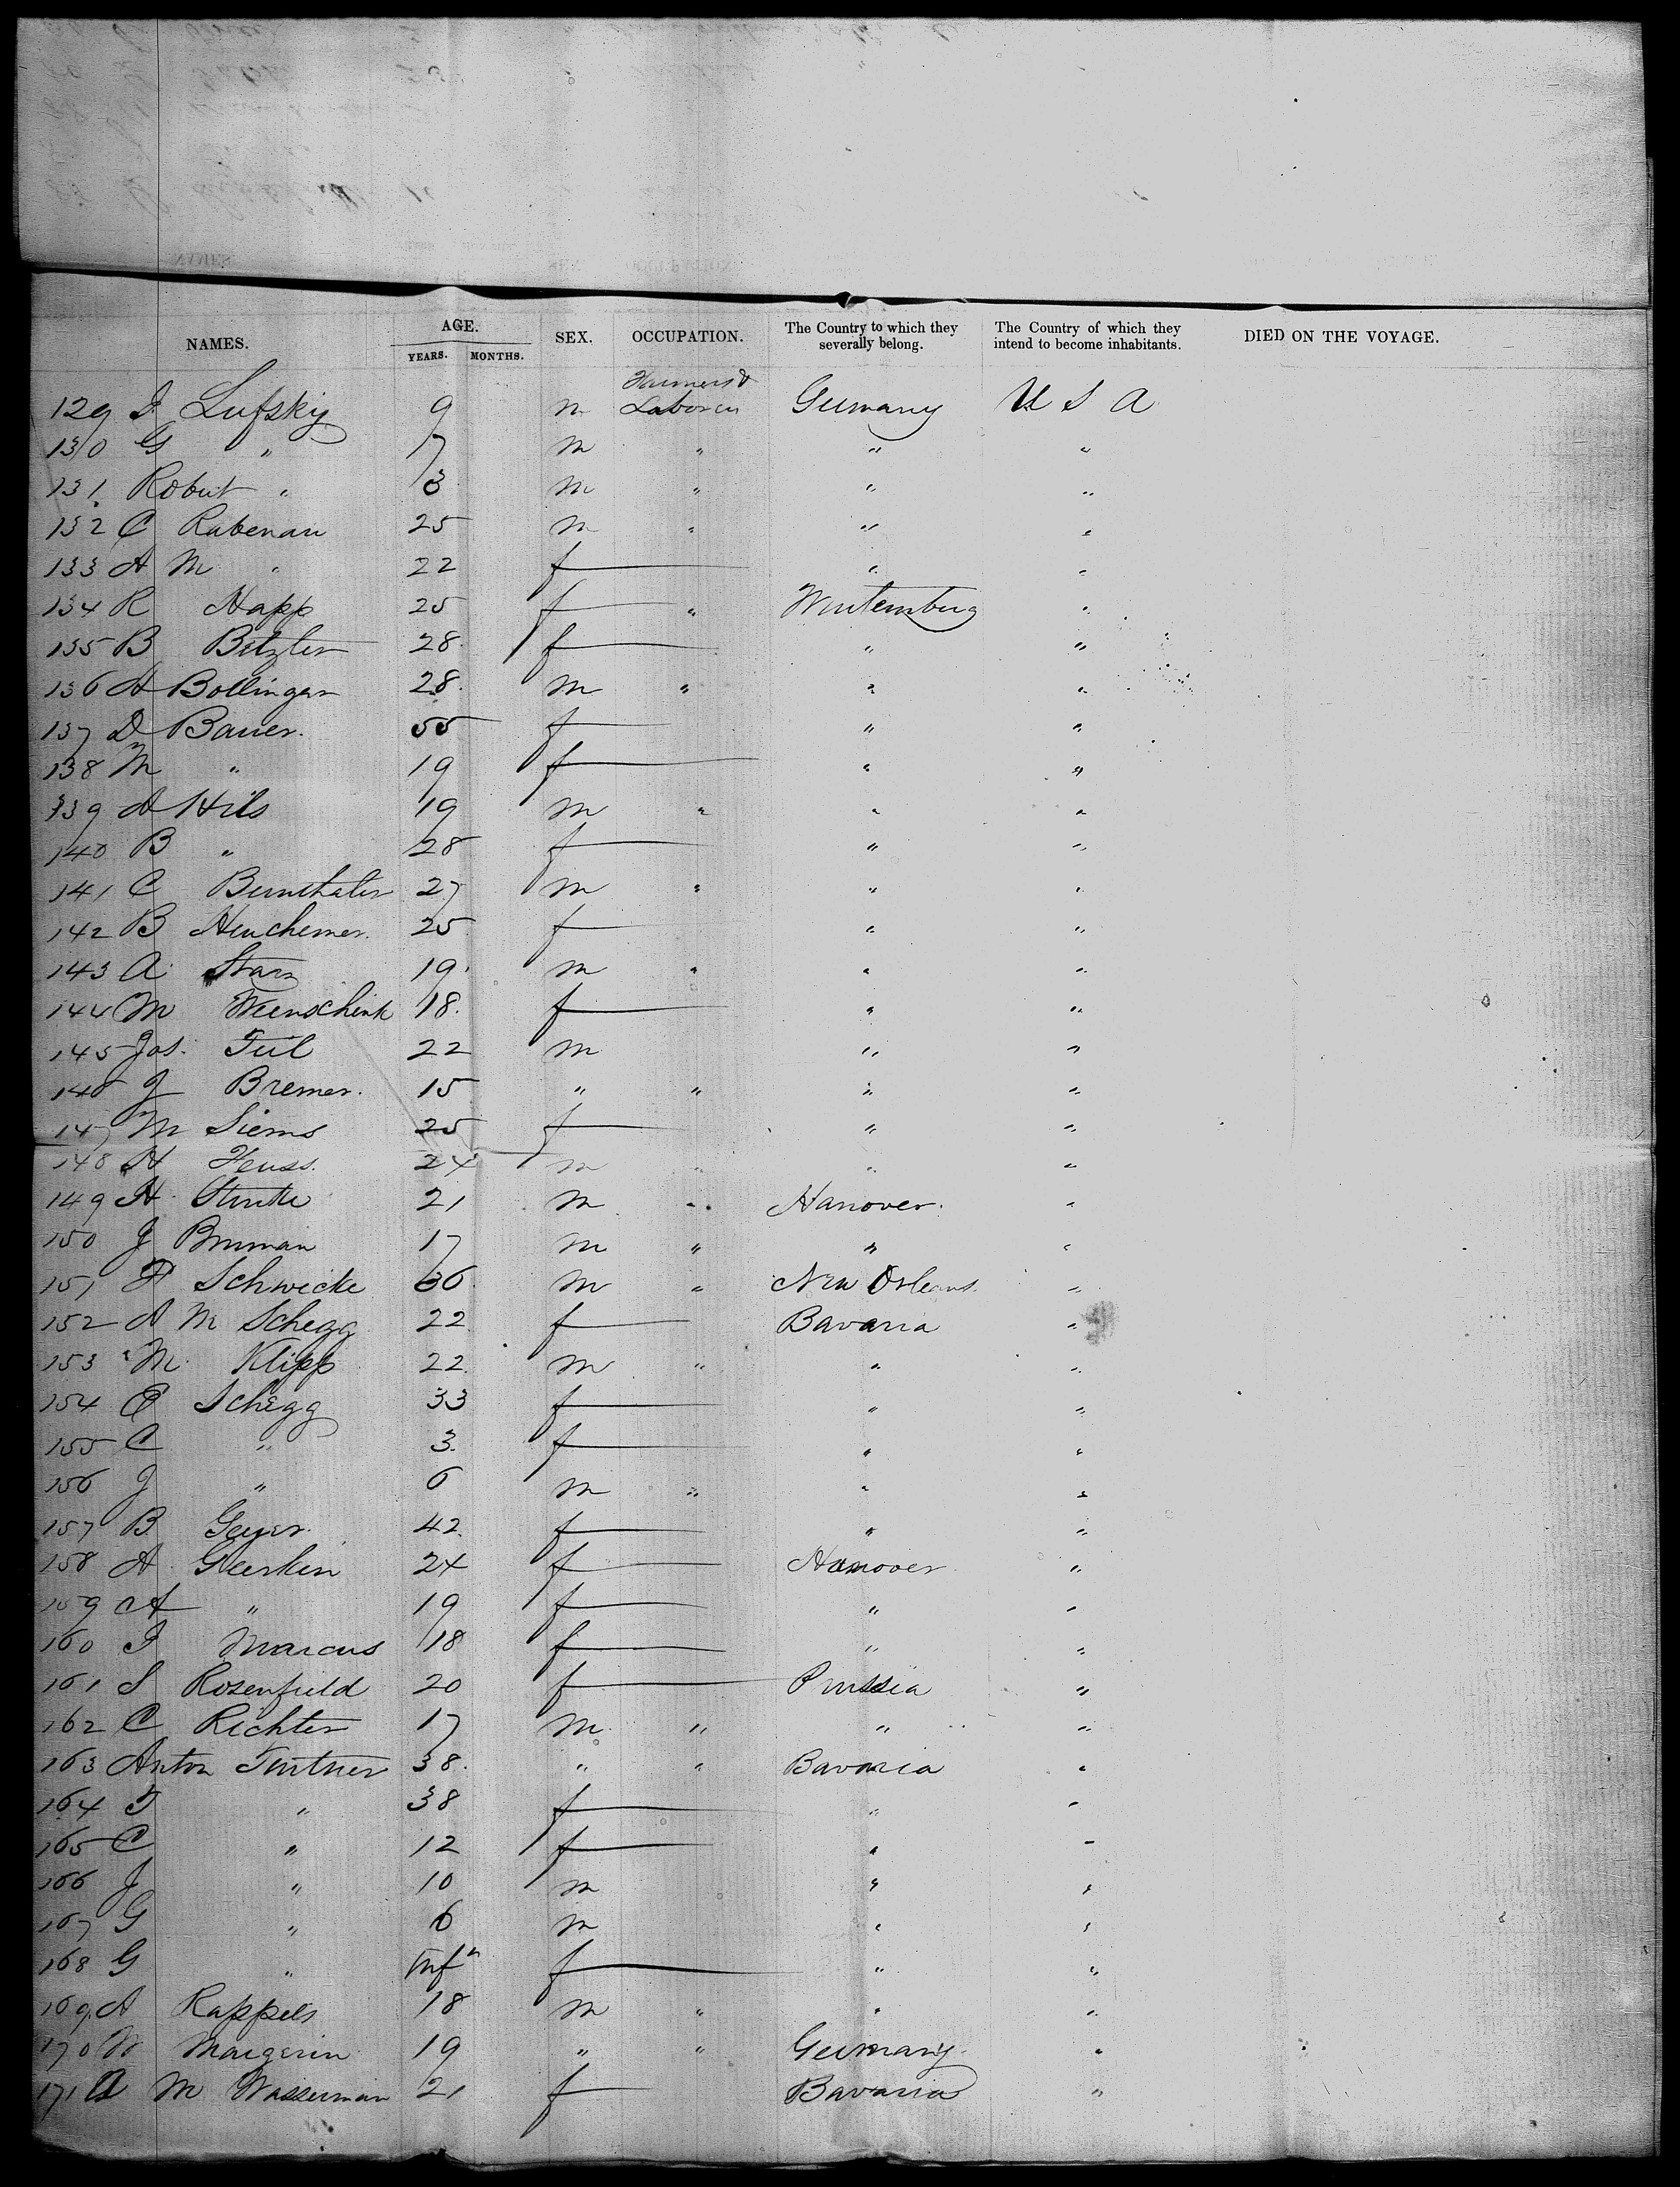 NAMES. AGE. SEX. OCCUPATION. The Country to which they severally belong. The Country of which they intend to become inhabitants. DIED ON THE VOYAGE.
YEARS. MONTHS.
Farmers &
129 I Lufsky 9 m Laborers Germany U S A
130 G " 7 m " " "
131 Robert " 3 m " " "
132 C Rabenau 25 m " " "
133 A M " 22 f " "
134 R Happ 25 f " Wurtemburg "
135 B Betzler 28. f " "
136 A Bollinger 28. m " " "
137 D Bauer. 55 f " "
138 M " 19 f " "
139 A Hils 19 m " " "
140 B " 28 f " "
141 C Bernthaler 27 m " " "
142 B Heuchemer. 25 f " "
143 A Starz 19. m " " "
144 M Weinschenk 18. f " "
145 Jos. Teil 22 m " "
146 J Bremer. 15 " " " "
147 M Siems 25 f " "
148 H Heuss. 24 m " " "
149 H. Strute 21 m " Hanover. "
150 J Bruman 17 m " " "
151 F Schwicke 36. m " New Orleans. "
152 A M Schegg 22. f Bavaria "
153 M. Klipp 22. m " " "
154 C Schegg 33 f " "
155 C " 3. f " "
156 J " 6 m " " "
157 B Geyer. 42. f " "
158 A. Geerken 24 f Hanover "
159 A " 19 f " "
160 I Marcus 18 f " "
161 S Rosenfield 20 f Prussia "
162 C Richter 17 m. " " "
163 Anton Tentner 38. " " Bavaria "
164 T " 38 f " "
165 C " 12 f " "
166 J " 10 m " "
167 G " 6 m " "
168 G " Infn f " "
169. A Rappels 18 m " " "
170 W Margerin 19 " " Germany. "
171 A M Wasserman 21 f Bavaria "